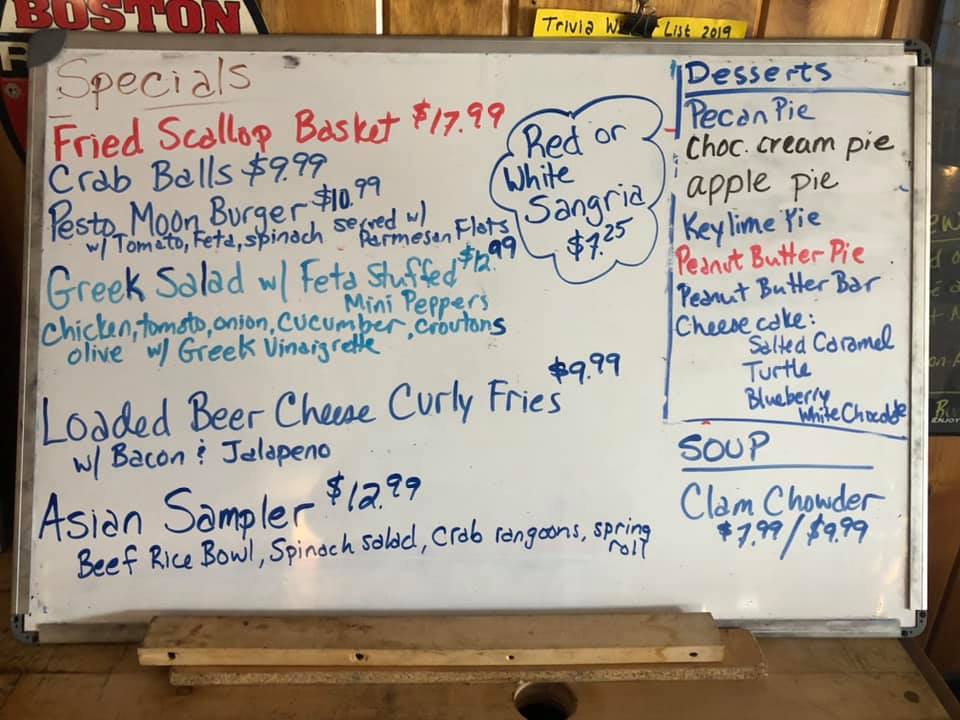 BOSTON
Trivia List 2019
Specials
Fried Scallop Basket $17.99
Crab Balls $9.99
Pesto Moon Burger $10.99
w/ Tomato, Feta, spinach served w/
Parmesan Flats
Greek Salad w/ Feta Stuffed $12.99
Mini Peppers
Chicken, tomato, onion, cucumber, croutons
olive w/ Greek Vinaigrette
Loaded Beer Cheese Curly Fries $9.99
w/ Bacon & Jalapeno
Asian Sampler $12.99
Beef Rice Bowl, Spinach salad, crab rangoons, spring
roll
Red or
White
Sangria
$7.25
Desserts
Pecan Pie
choc. cream pie
apple pie
Key lime Pie
Peanut Butter Pie
Peanut Butter Bar
Cheesecake:
Salted Caramel
Turtle
Blueberry
White Chocolate
SOUP
Clam Chowder
$7.99/$9.99